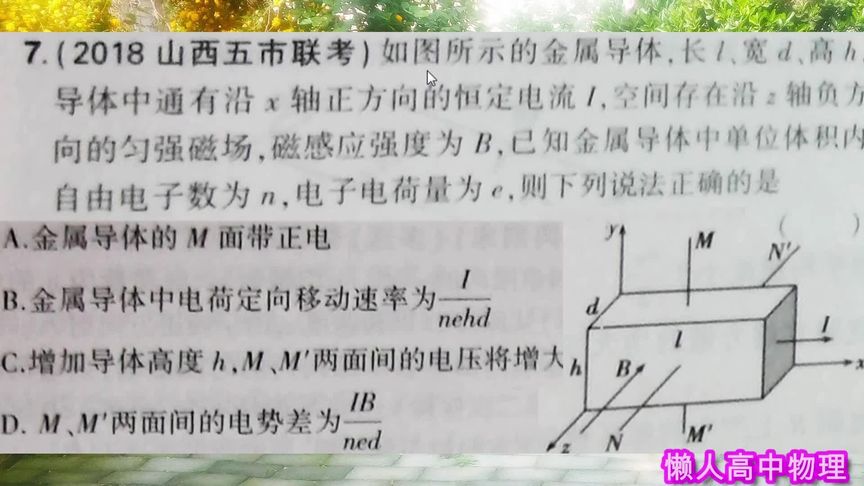 7.(2018 山西五市联考)如图所示的金属导体,长 l、宽 d、高 h,
导体中通有沿 x 轴正方向的恒定电流 I,空间存在沿 z 轴负方
向的匀强磁场,磁感应强度为 B,已知金属导体中单位体积内
自由电子数为 n,电子电荷量为 e,则下列说法正确的是
( )
A.金属导体的 M 面带正电
B.金属导体中电荷定向移动速率为 I/nehd
C.增加导体高度 h,M、M′两面间的电压将增大
D. M、M′两面间的电势差为 IB/ned
y
M
N′
d
l
I
h
B
x
z
N
M′
懒人高中物理